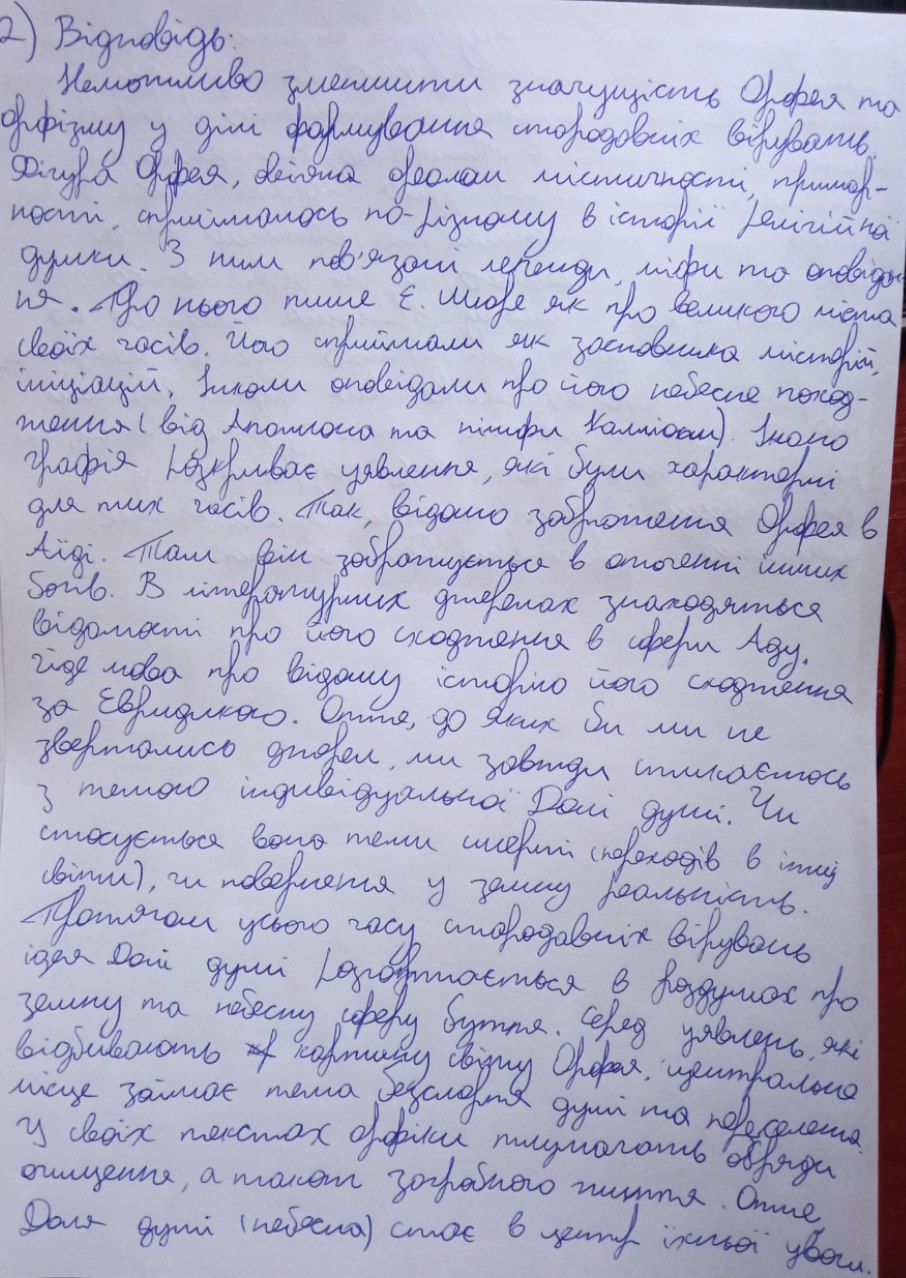 2) Відповідь:
Неможливо зменшити значущість Орфея та
орфізму у ділі формування стародавніх вірувань.
Фігура Орфея, овіяна ореолом містичності, примар-
ності, сприймалось по-різному в історії релігійної
думки. З ним пов'язані легенди, міфи та оповідан-
ня. Про нього пише Е. Шюре як про великого міста
своїх часів. Його сприймали як засновника містерій,
ініціацій. Інколи оповідали про його небесне поход-
ження (від Аполлона та німфи Калліопи). Іконо
графія розкриває уявлення, які були характерні
для тих часів. Так, відомо зображення Орфея в
Аїді. Там він зображується в оточенні інших
богів. В літературних джерелах знаходяться
відомості про його сходження в сфери Аду.
Йде мова про відому історію його сходження
за Евридикою. Отже, до яких би ми не
звертались джерел, ми завжди стикаємось
з темою індивідуальної Долі душі. Чи
стосується вона теми смерті (переходів в інші
світи), чи повернення у земну реальність.
Протягом усього часу стародавніх вірувань
ідея Долі душі розгортається в роздумах про
земну та небесну сферу буття. Серед уявлень, які
відбивають картину світу Орфея, центральне
місце займає тема безсмертя душі та переселення.
У своїх текстах орфіки тлумачать обряди
очищення, а також загробного життя. Отже,
Доля душі (небесна) стає в центр їхньої уваги.